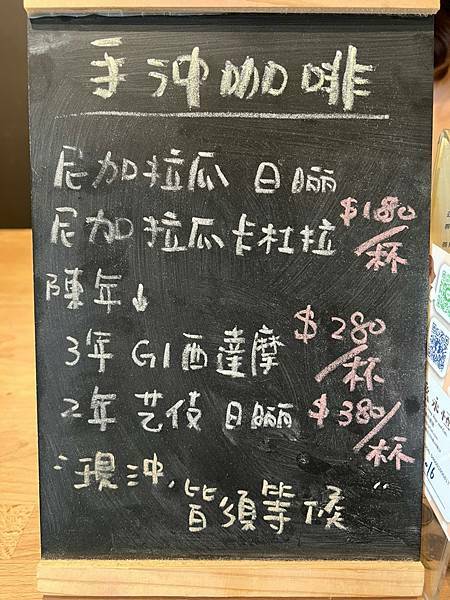 手沖咖啡
尼加拉瓜 日曬
尼加拉瓜卡杜拉 $180/杯
陳年↓
3年 G1西達摩 $280/杯
2年 艺伎 日曬 $380/杯
"現沖,皆須等候"